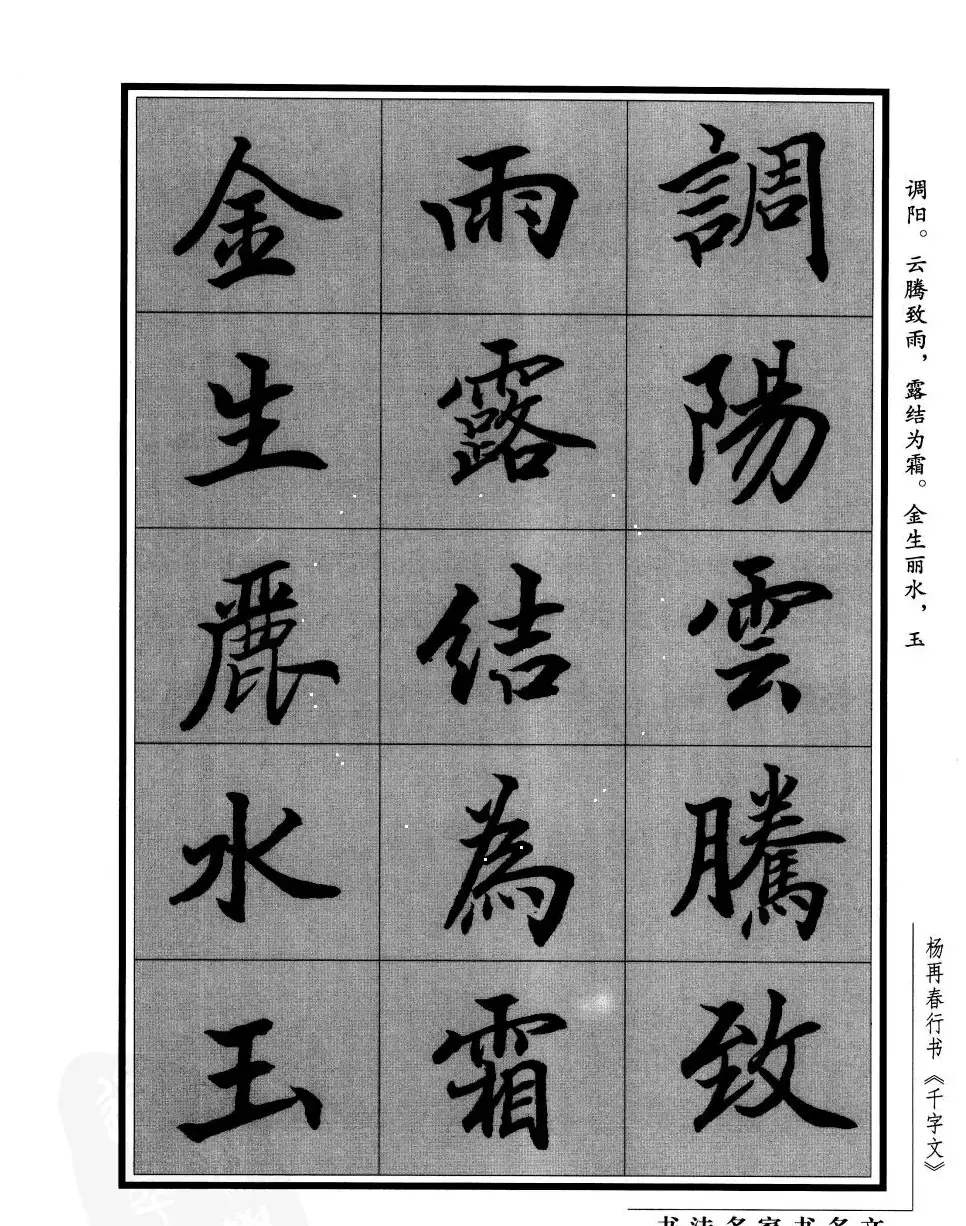 调阳。云腾致雨，露结为霜。金生丽水，玉
調陽雲騰致
雨露結為霜
金生麗水玉
杨再春行书《千字文》